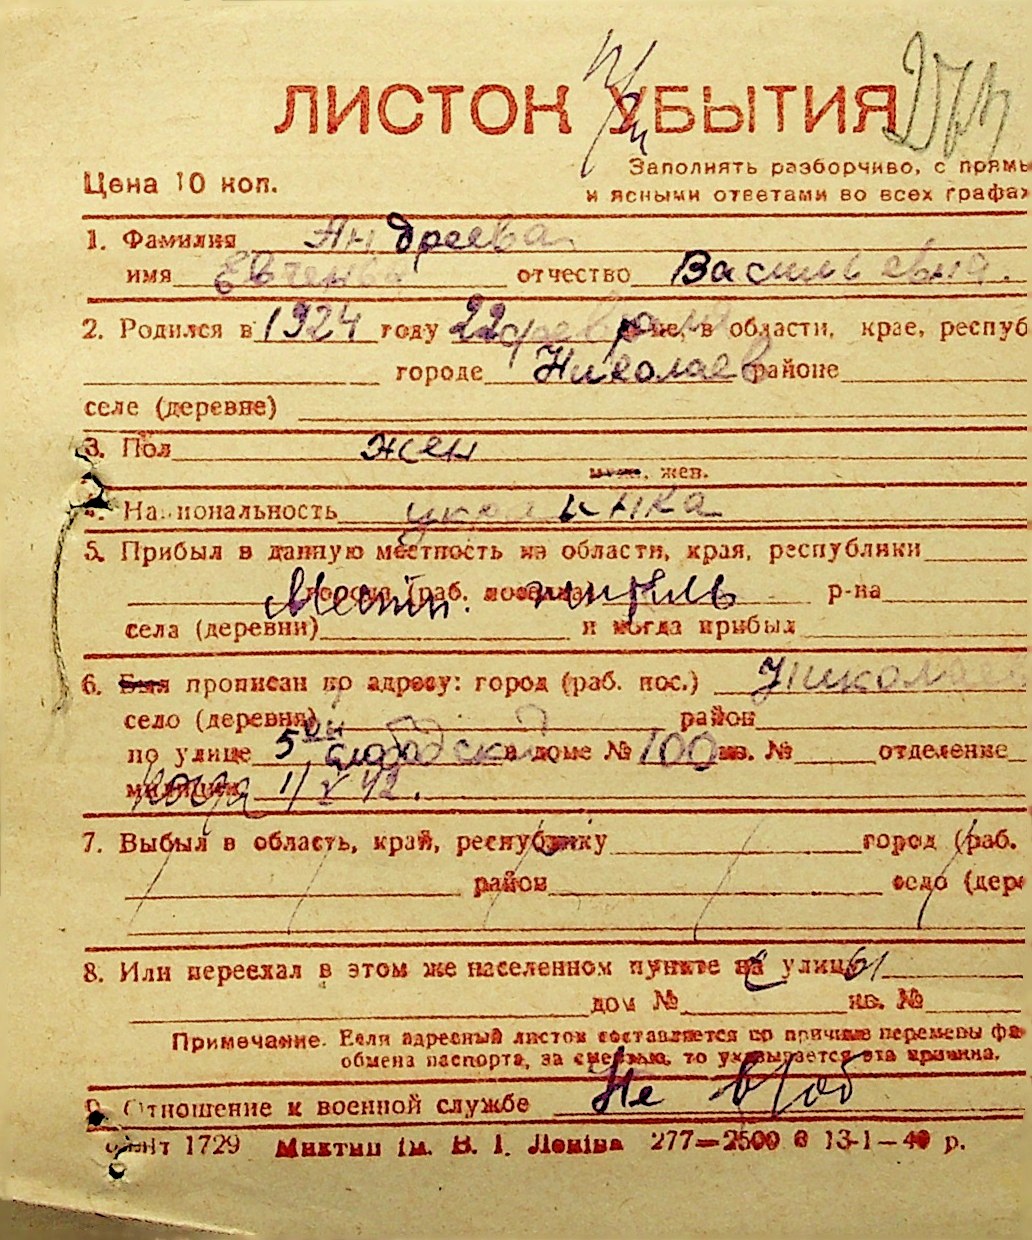 ЛИСТОК УБЫТИЯ
Цена 10 коп.
Заполнять разборчиво, с прямы
и ясными ответами во всех графах
1. Фамилия Андреева
имя отчество Васильевна.
2. Родился в 1924 году 22 февраля в области, крае, респуб
городе Николаев районе
селе (деревне)
3. Пол жен
муж. жев.
4. Национальность украинка
5. Прибыл в данную местность из области, края, республики
Местн. житель
города (раб. поселка) р-на
села (деревни) и когда прибыл
6. Был прописан по адресу: город (раб. пос.) Николаев
село (деревня) район
по улице 5ой слободской в доме № 100 кв. № отделение
милиции когда 1/V 42.
7. Выбыл в область, край, республику город (раб.
район село (дере
8. Или переехал в этом же населенном пункте на улицу
дом № кв. №
Примечание. Если адресный листок составляется по причине перемены фа
обмена паспорта, за смертью, то указывается эта причина.
9. Отношение к военной службе Не в/об
1729 Миктип ім. В. І. Леніна 277—2500 0 13-1-40 р.